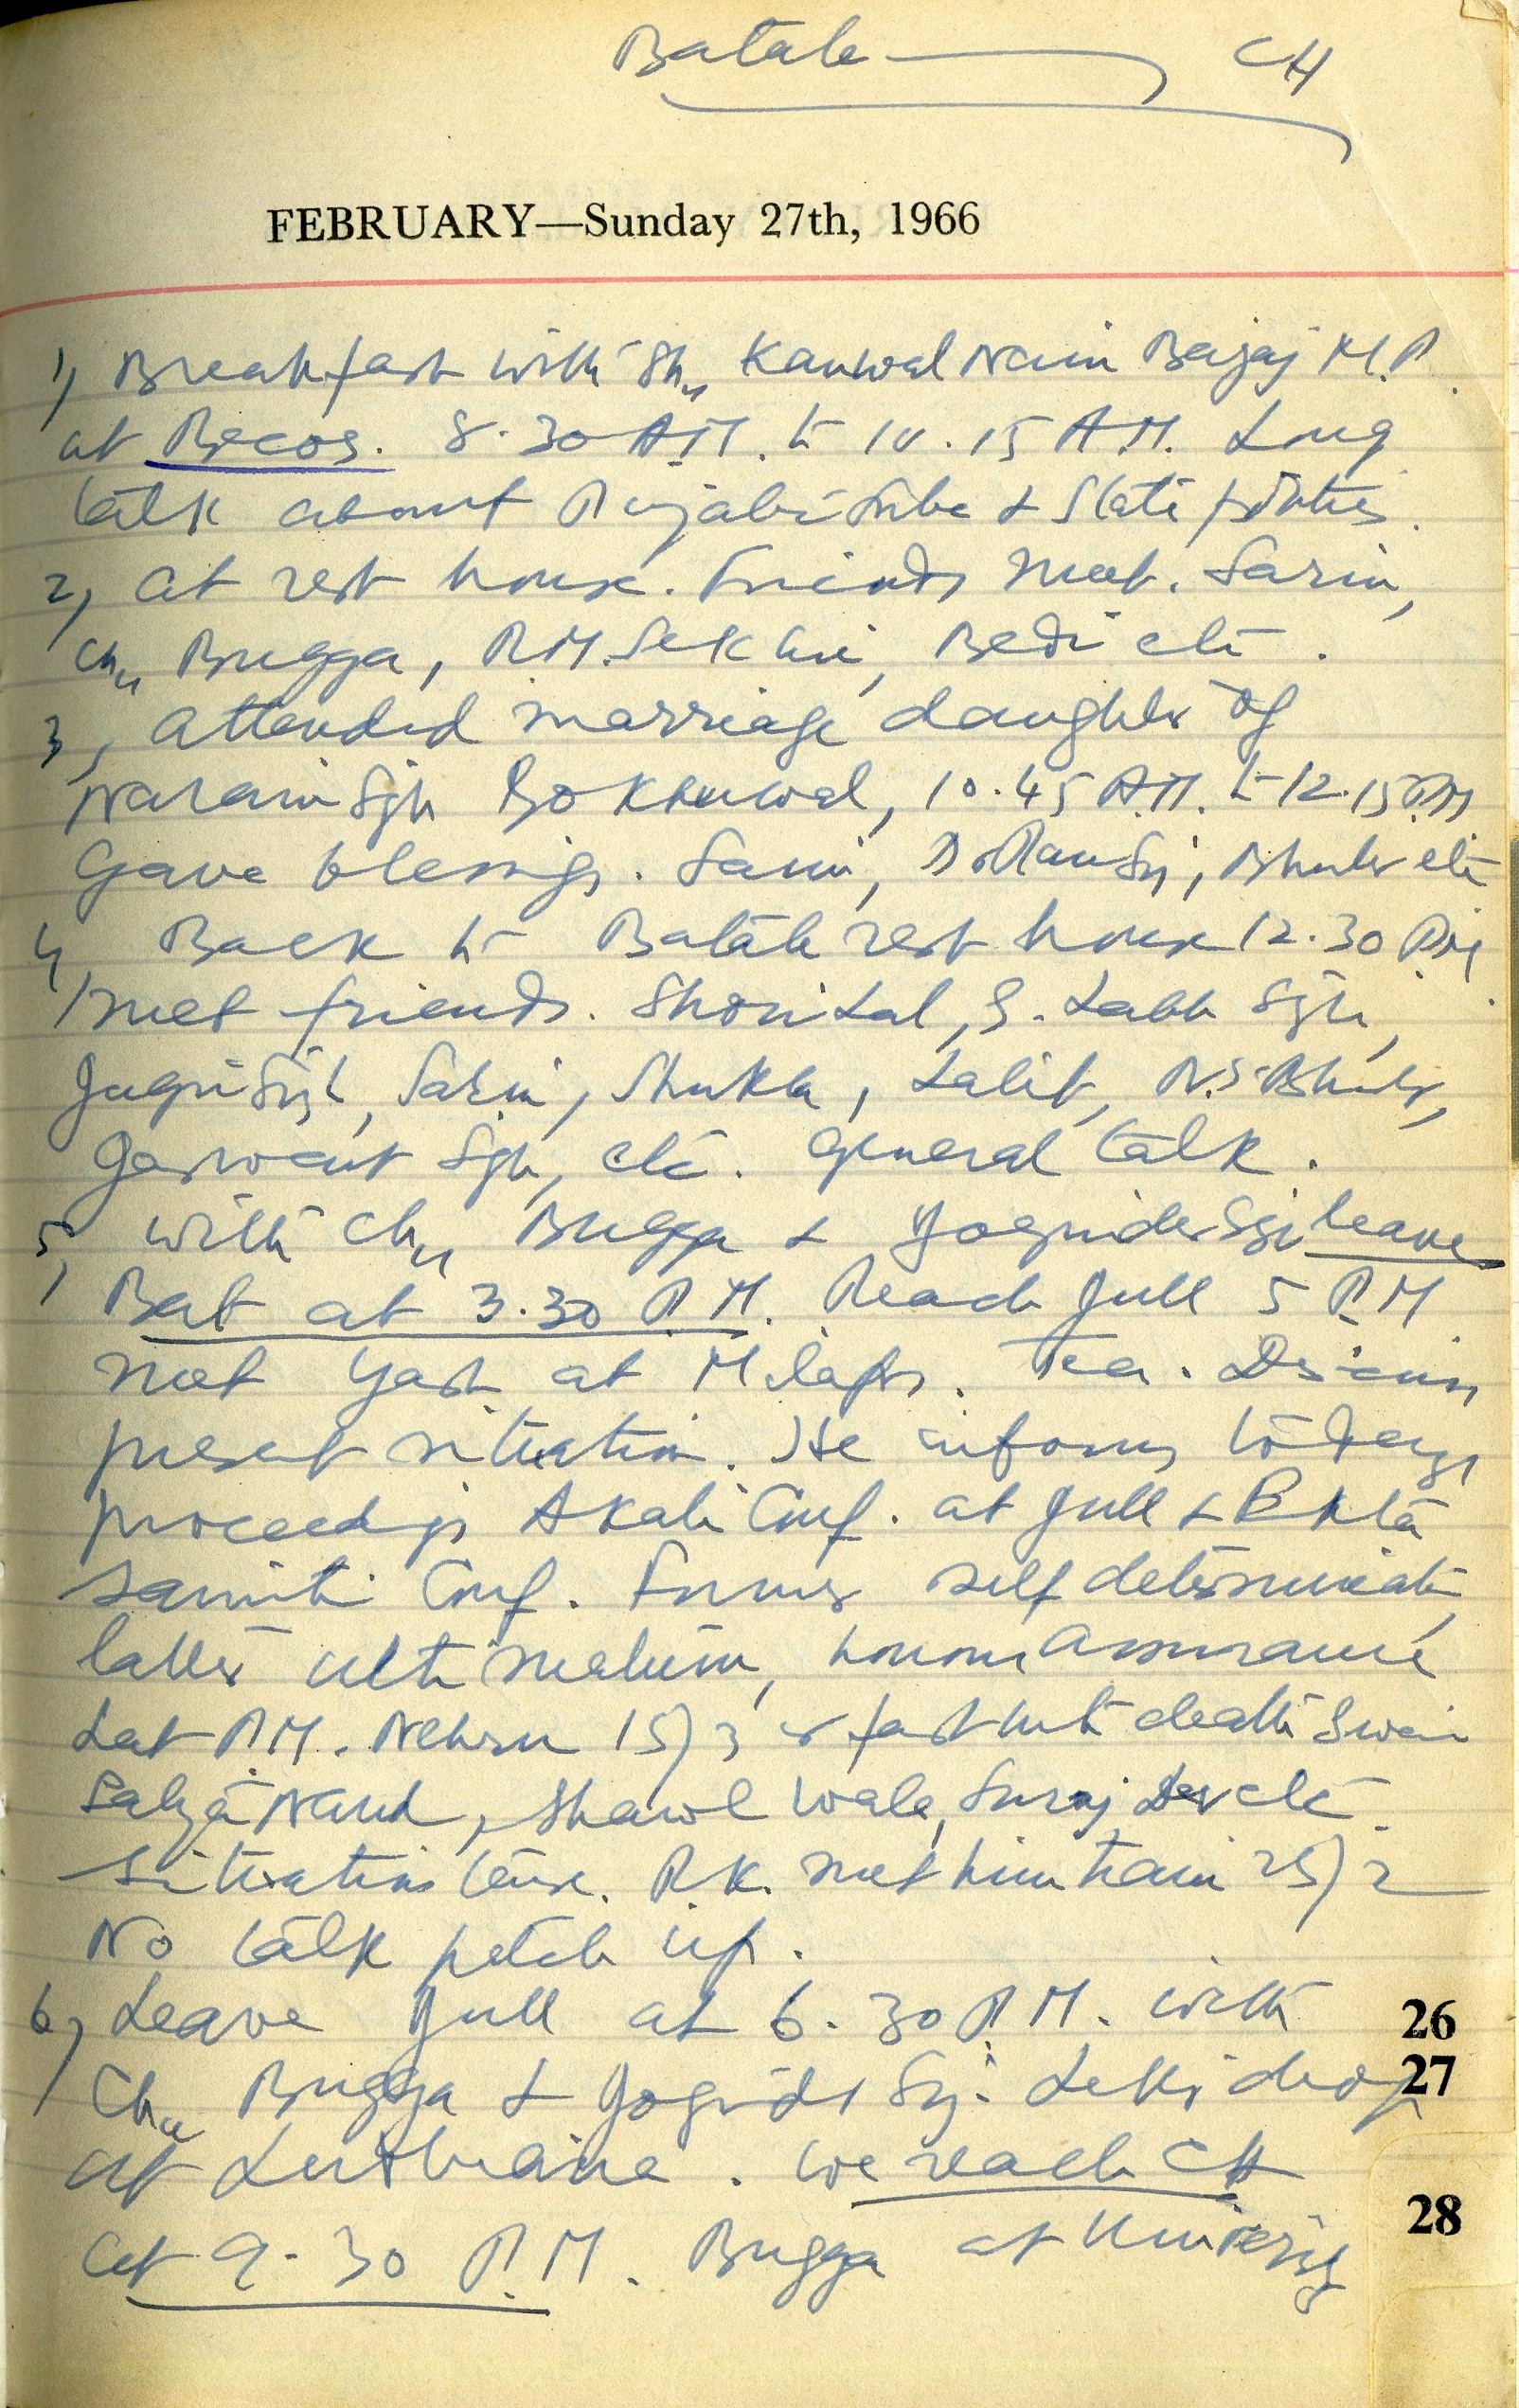 Batala CH
FEBRUARY—Sunday 27th, 1966
1, Breakfast with Sh. Kanwal Nain Bajaj M.P.
at Becos. 8.30 A.M. to 10.15 A.M. Long
talk about Punjabi Suba & State politics.
2, at rest house. Friends meet. Sarin,
Ch. Bugga, R.M. Sekhri, Bedi etc.
3, attended marriage daughter of
Narain Sgh, 10.45 A.M. to 12.15 PM
Gave blessings. Sarin, Bhuler etc
4, Back to Batala rest house 12.30 PM
met friends. Shori Lal, S. Labh Sgh,
Sarin, Shukla, Lalit, Bhuler,
Jaswant Sgh, etc. General talk.
5, with Ch. Bugga & Joginder Sgh leave
Bat at 3.30 P.M. Reach Jull 5 P.M
met Yash at Milap. Tea. Discuss
present situation. He informs today's
proceedings Akali Conf. at Jull & Ekta
Samiti Conf. Former self determination
latter ultimatum, honour assurance
Lat P.M. Nehru 15/3 or fast unto death Swami
Satya Nand, Shawl wala, Suraj Dev etc.
Situation tense. P.K. met him train 25/2
No talk patch up.
6, Leave Jull at 6.30 P.M. with
Ch. Bugga & Joginder Sgh. Latter drop
at Ludhiana. We reach CH
at 9.30 P.M. Bugga at University
26
27
28